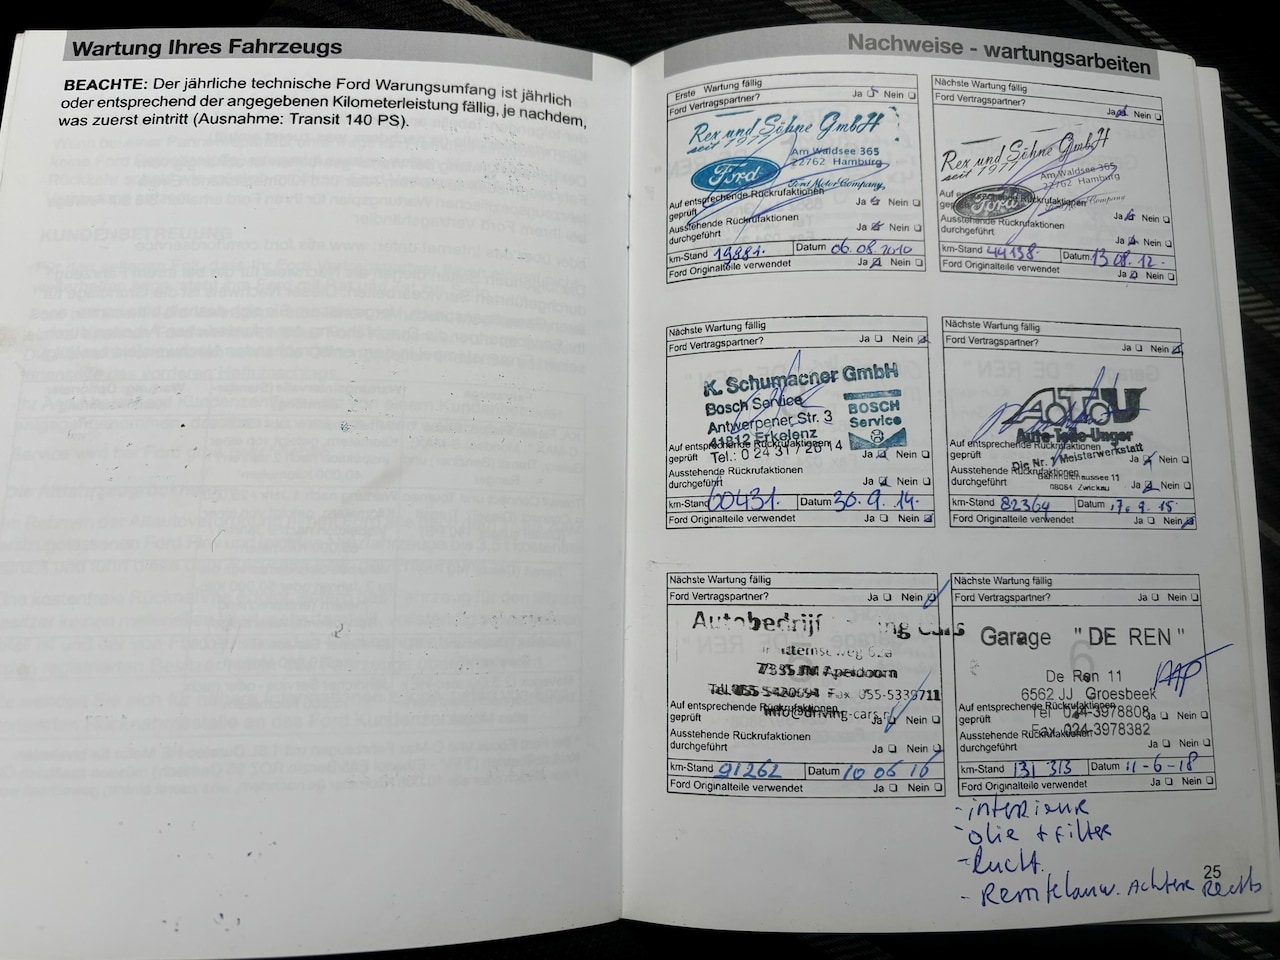 Wartung Ihres Fahrzeugs
BEACHTE: Der jährliche technische Ford Warungsumfang ist jährlich
oder entsprechend der angegebenen Kilometerleistung fällig, je nachdem,
was zuerst eintritt (Ausnahme: Transit 140 PS).
Nachweise - wartungsarbeiten
Erste Wartung fällig
Ford Vertragspartner? Ja Nein
Rex und Söhne GmbH
seit 1977
Am Waldsee 365
22762 Hamburg
Ford
Ford Motor Company,
Auf entsprechende Rückrufaktionen
geprüft Ja Nein
Ausstehende Rückrufaktionen
durchgeführt Ja Nein
km-Stand 19881. Datum 06.08.2010
Ford Originalteile verwendet Ja Nein
Nächste Wartung fällig
Ford Vertragspartner? Ja Nein
Rex und Söhne GmbH
seit 1977
Am Waldsee 365
22762 Hamburg
Ford
Auf entsprechende Rückrufaktionen
geprüft Ja Nein
Ausstehende Rückrufaktionen
durchgeführt Ja Nein
km-Stand 44138. Datum 13 08. 12.
Ford Originalteile verwendet Ja Nein
Nächste Wartung fällig
Ford Vertragspartner? Ja Nein
K. Schumacher GmbH
Bosch Service
Antwerpener Str. 3
41812 Erkelenz
Tel.: 0 24 31 / 20 14
BOSCH
Service
Auf entsprechende Rückrufaktionen
geprüft Ja Nein
Ausstehende Rückrufaktionen
durchgeführt Ja Nein
km-Stand 60431. Datum 30. 9. 14.
Ford Originalteile verwendet Ja Nein
Nächste Wartung fällig
Ford Vertragspartner? Ja Nein
A.T.U
Auto-Teile-Unger
Die Nr. 1 Meisterwerkstatt
08064 Zwickau
Auf entsprechende Rückrufaktionen
geprüft Ja Nein
Ausstehende Rückrufaktionen
durchgeführt Ja Nein
km-Stand 82364 Datum 17. 9. 15.
Ford Originalteile verwendet Ja Nein
Nächste Wartung fällig
Ford Vertragspartner? Ja Nein
Autobedrijf ng Cars
weg 62a
7335JM Apeldoorn
Tel. 055-5420694 Fax 055-5339711
info@driving-cars.nl
Auf entsprechende Rückrufaktionen
geprüft Ja Nein
Ausstehende Rückrufaktionen
durchgeführt Ja Nein
km-Stand 91262 Datum 10 06 16
Ford Originalteile verwendet Ja Nein
Nächste Wartung fällig
Ford Vertragspartner? Ja Nein
Garage "DE REN"
De Ren 11
6562 JJ Groesbeek
Tel 024-3978808
Fax 024-3978382
Auf entsprechende Rückrufaktionen
geprüft Ja Nein
Ausstehende Rückrufaktionen
durchgeführt Ja Nein
km-Stand 131 313 Datum 11-6-18
Ford Originalteile verwendet Ja Nein
- interieur
- olie + filter
- Lucht.
- Remklauw. Achter Rechts
25